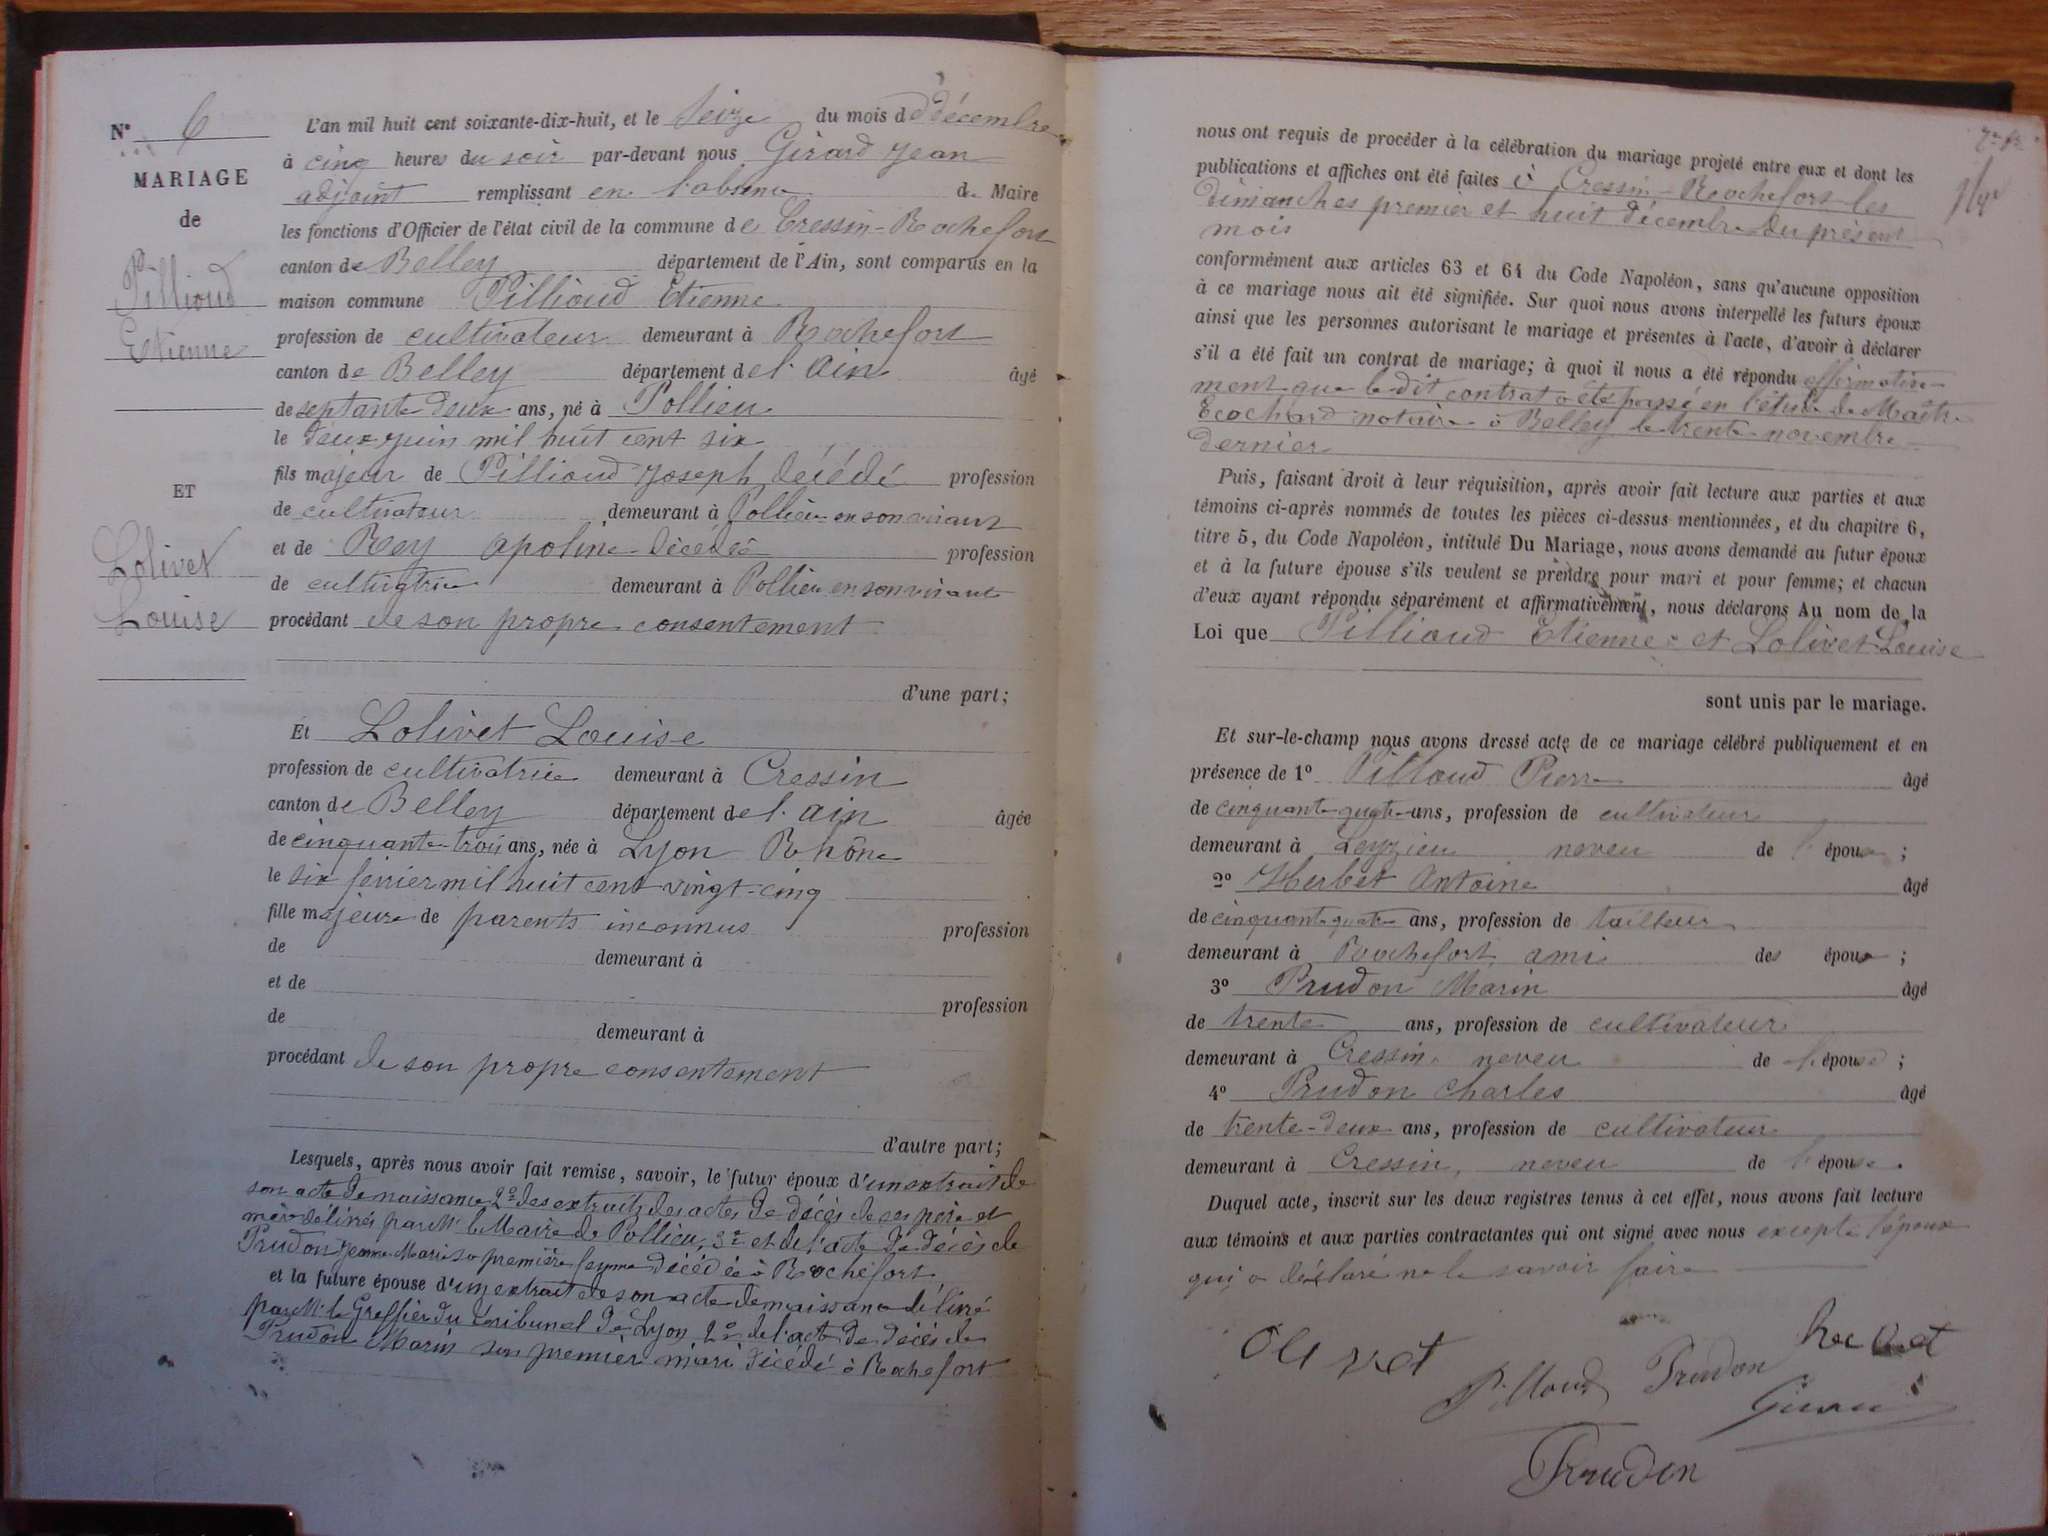 N° 6
MARIAGE
de
Pillioud
Etienne
ET
Lolivet
Louise
L'an mil huit cent soixante-dix-huit, et le Seize du mois de décembre
à cinq heures du soir par-devant nous Girard Jean
adjoint remplissant en l'absence de Maire
les fonctions d'Officier de l'état civil de la commune de Cressin-Rochefort
canton de Belley département de l'Ain, sont comparus en la
maison commune Pillioud Etienne
profession de cultivateur demeurant à Rochefort
canton de Belley département de l'Ain âgé
de septante deux ans, né à Pollieu
le deux juin mil huit cent six
fils majeur de Pillioud Joseph décédé profession
de cultivateur demeurant à Pollieu en son vivant
et de Rey Apoline décédée profession
de cultivatrice demeurant à Pollieu en son vivant
procédant de son propre consentement
d'une part;
Et Lolivet Louise
profession de cultivatrice demeurant à Cressin
canton de Belley département de l'Ain âgée
de cinquante-trois ans, née à Lyon Rhône
le six février mil huit cent vingt-cinq
fille majeure de parents inconnus profession
de demeurant à
et de profession
de demeurant à
procédant de son propre consentement
d'autre part;
Lesquels, après nous avoir fait remise, savoir, le futur époux d'un extrait de
son acte de naissance 2° des extraits des actes de décès de ses père et
mère délivrés par Mr le Maire de Pollieu, 3° et de l'acte de décès de
Prudon Jeanne Marie sa première femme décédée à Rochefort
et la future épouse d'un extrait de son acte de naissance délivré
par Mr le Greffier du tribunal de Lyon 2° de l'acte de décès de
Prudon Marin son premier mari décédé à Rochefort
nous ont requis de procéder à la célébration du mariage projeté entre eux et dont les
publications et affiches ont été faites à Cressin-Rochefort les
dimanches premier et huit décembre du présent
mois
conformément aux articles 63 et 64 du Code Napoléon, sans qu'aucune opposition
à ce mariage nous ait été signifiée. Sur quoi nous avons interpellé les futurs époux
ainsi que les personnes autorisant le mariage et présentes à l'acte, d'avoir à déclarer
s'il a été fait un contrat de mariage; à quoi il nous a été répondu affirmative-
ment que le dit contrat a été passé en l'étude de Maître
Ecochard notaire à Belley le trente novembre
dernier
Puis, faisant droit à leur réquisition, après avoir fait lecture aux parties et aux
témoins ci-après nommés de toutes les pièces ci-dessus mentionnées, et du chapitre 6,
titre 5, du Code Napoléon, intitulé Du Mariage, nous avons demandé au futur époux
et à la future épouse s'ils veulent se prendre pour mari et pour femme; et chacun
d'eux ayant répondu séparément et affirmativement, nous déclarons Au nom de la
Loi que Pillioud Etienne et Lolivet Louise
sont unis par le mariage.
Et sur-le-champ nous avons dressé acte de ce mariage célébré publiquement et en
présence de 1° Pilloud Pierre âgé
de cinquante-quatre ans, profession de cultivateur
demeurant à Leyzieu neveu de l'époux ;
2° Herbet Antoine âgé
de cinquante quatre ans, profession de tailleur
demeurant à Rochefort ami des époux ;
3° Prudon Marin âgé
de trente ans, profession de cultivateur
demeurant à Cressin neveu de l'épouse ;
4° Prudon Charles âgé
de trente-deux ans, profession de cultivateur
demeurant à Cressin, neveu de l'épouse.
Duquel acte, inscrit sur les deux registres tenus à cet effet, nous avons fait lecture
aux témoins et aux parties contractantes qui ont signé avec nous excepté l'époux
qui a déclaré ne le savoir faire
Olivet
Pilloud Prudon
Girard
Prudon